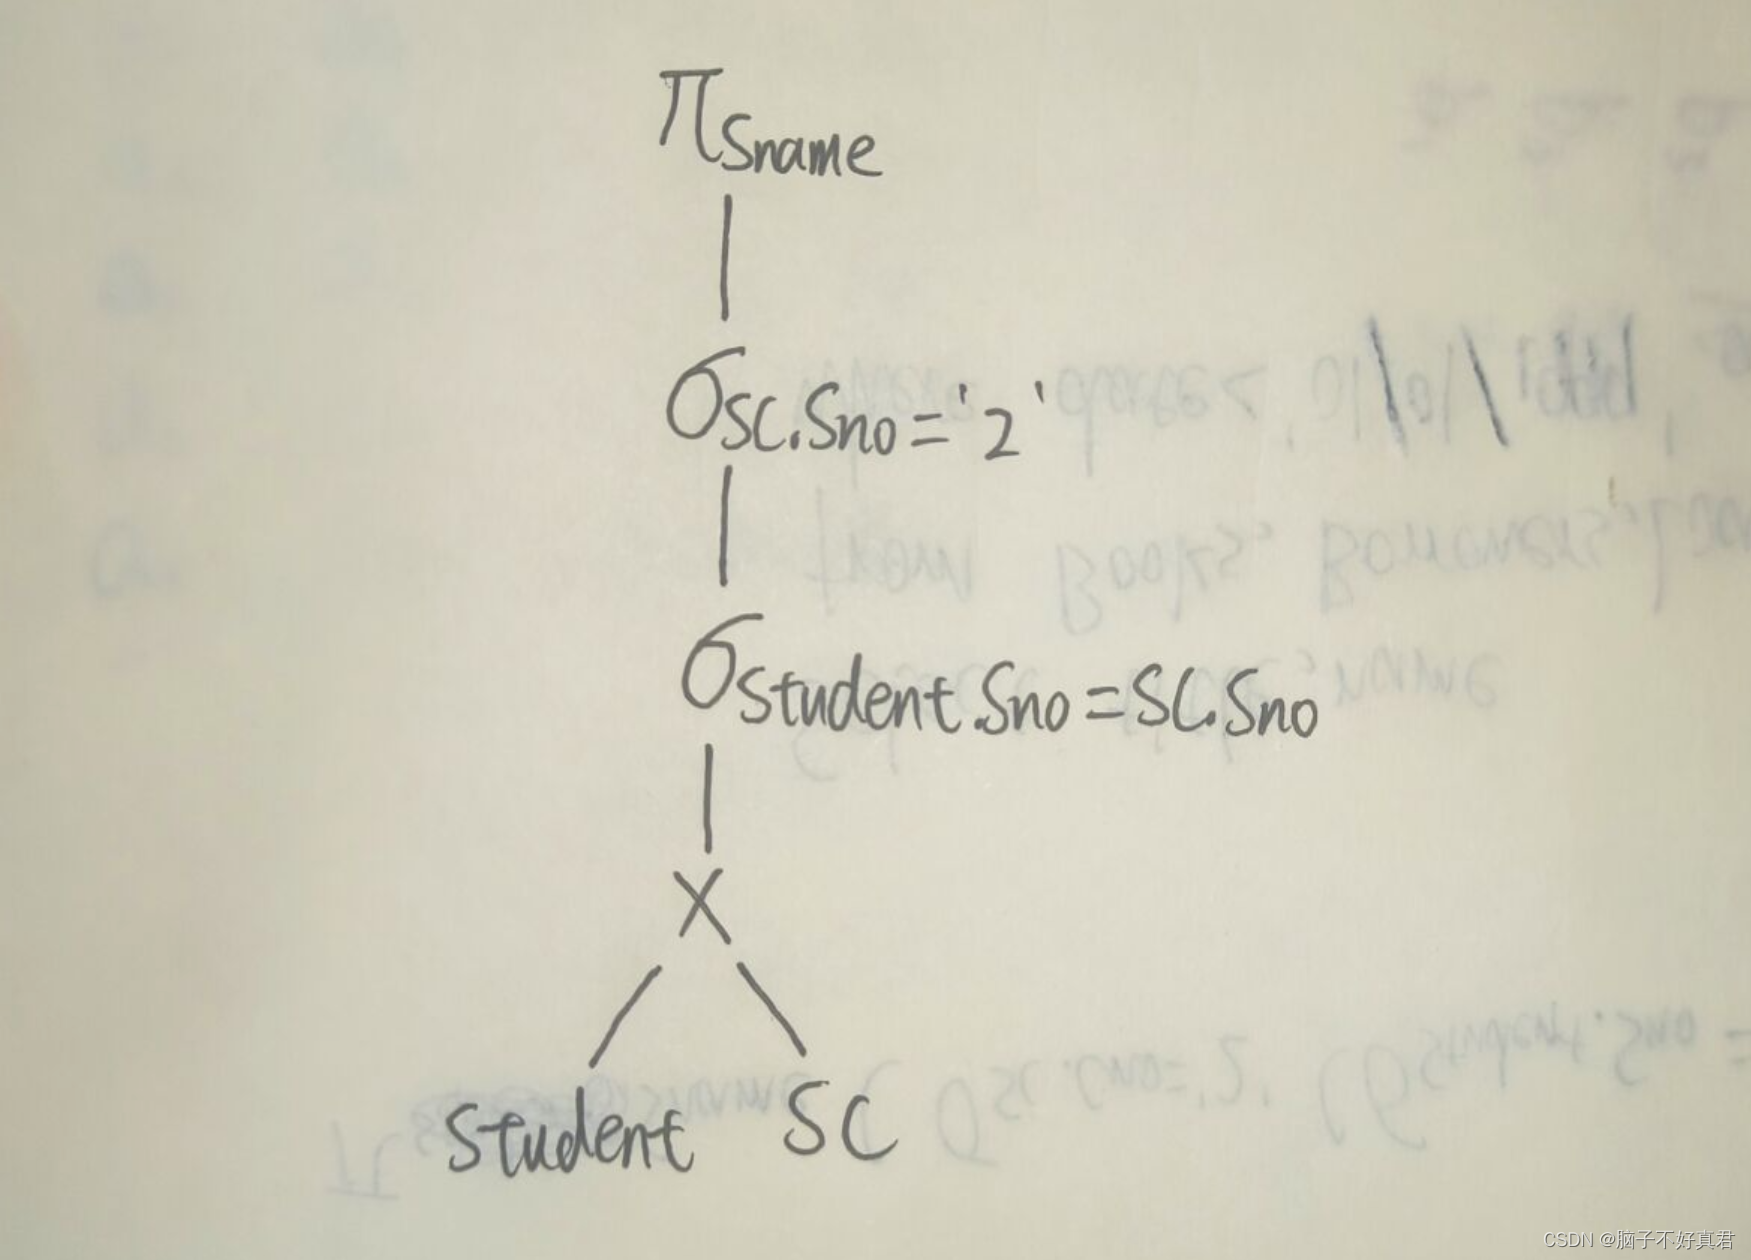 π Sname
σ SC.Sno='2'
σ Student.Sno=SC.Sno
×
Student SC
CSDN @脑子不好真君